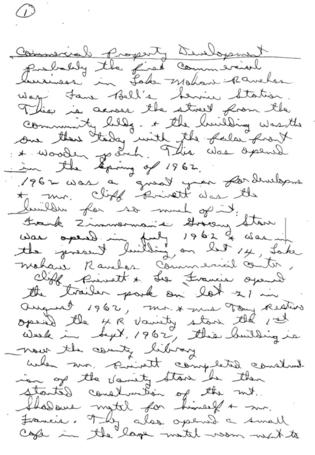 1
Commercial Property Development
Probably the first Commercial
business in Lake Mohave Ranchos
was Jane Bell's Service Station.
This is across the street from the
community bldg. & the building was the
one there today with the false front
& wooden porch. This was opened
in the Spring of 1962.
1962 was a great year for developers
& Mr. Cliff was the
builder for so much of it.
Frank Zimmerman's Grocery Store
was opened in July 1962 & was in
the present building on lot 14, Lake
Mohave Ranchos Commercial Center.
Cliff & Francis opened
the trailer park on lot 21 in
August 1962, Mr. & Mrs Tony
opened the 4R Vanity store the 1st
week in Sept. 1962, this building is
now the county library
When Mr. completed construct-
ion of the Vanity Store he then
started construction of the Mt.
Shadows Motel for himself & Mr.
Francis. They also opened a small
Cafe in the large motel room next to